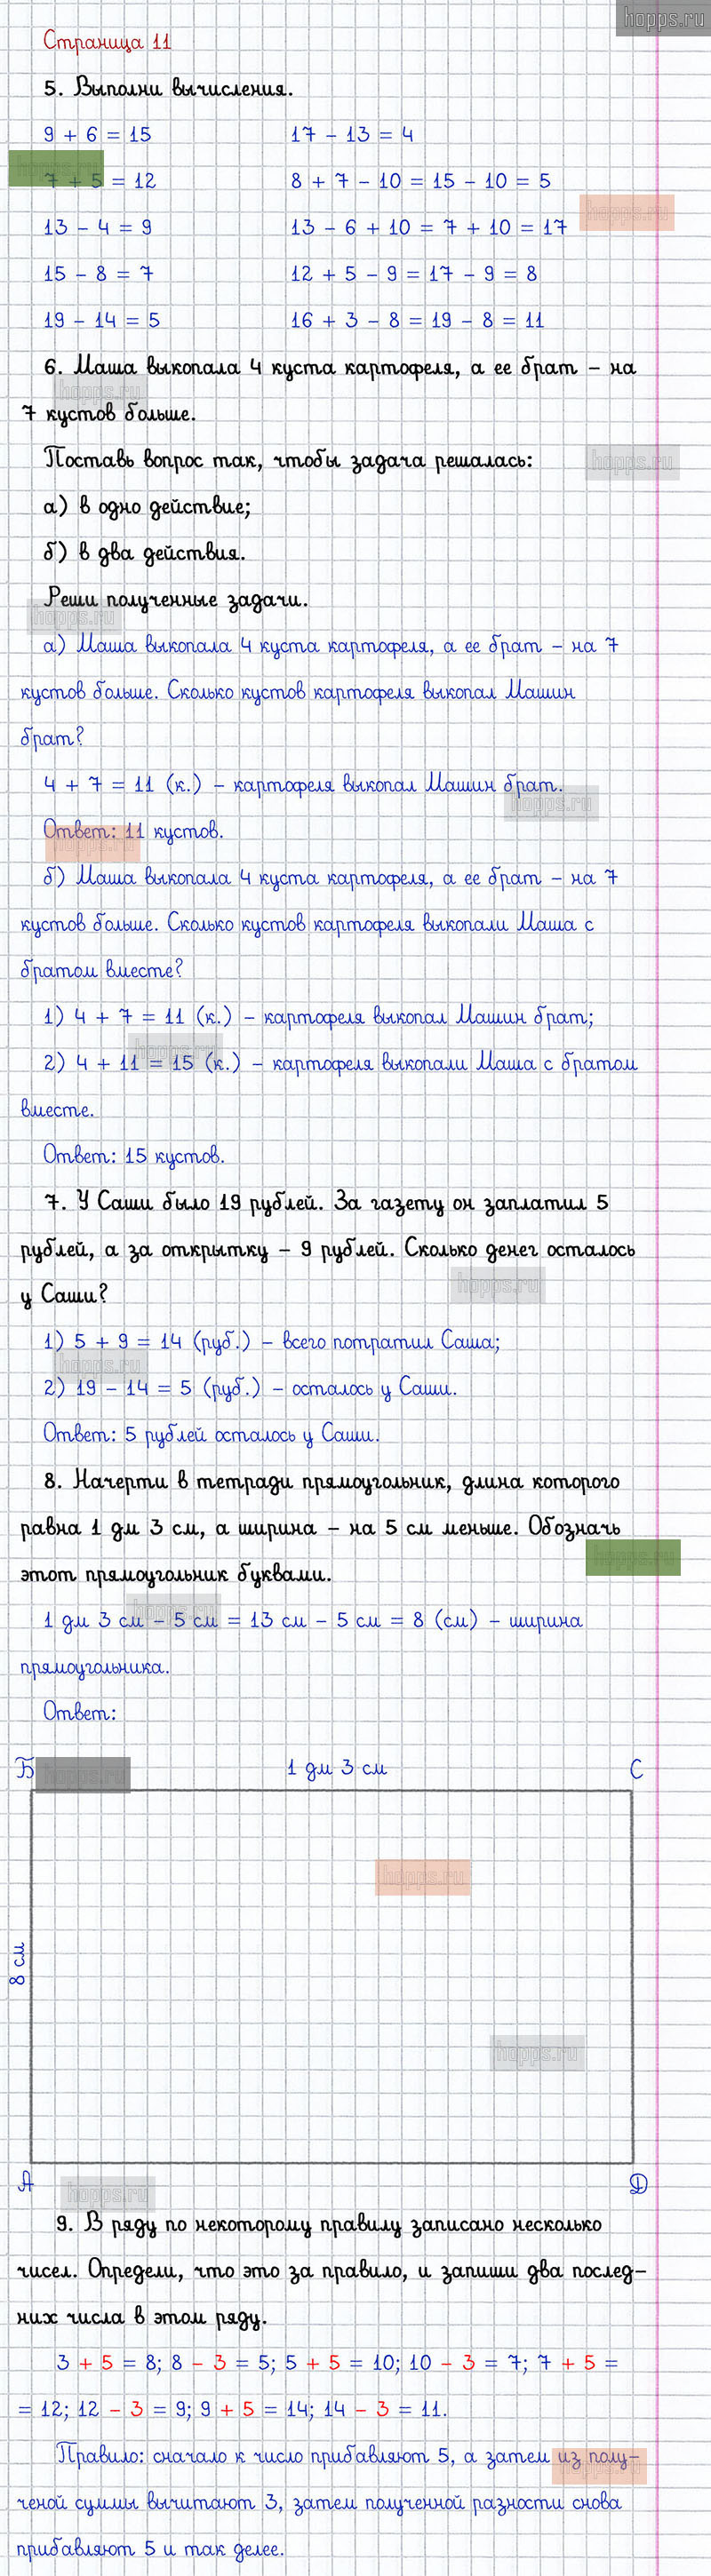 hopps.ru
Страница 11
5. Выполни вычисления.
9 + 6 = 15 17 - 13 = 4
7 + 5 = 12 8 + 7 - 10 = 15 - 10 = 5
hopps.ru
13 - 4 = 9 13 - 6 + 10 = 7 + 10 = 17
15 - 8 = 7 12 + 5 - 9 = 17 - 9 = 8
19 - 14 = 5 16 + 3 - 8 = 19 - 8 = 11
6. Маша выкопала 4 куста картофеля, а ее брат - на
hopps.ru
7 кустов больше.
Поставь вопрос так, чтобы задача решалась:
hopps.ru
а) в одно действие;
б) в два действия.
Реши полученные задачи.
hopps.ru
а) Маша выкопала 4 куста картофеля, а ее брат - на 7
кустов больше. Сколько кустов картофеля выкопал Машин
брат?
4 + 7 = 11 (к.) - картофеля выкопал Машин брат.
hopps.ru
Ответ: 11 кустов.
hopps.ru
б) Маша выкопала 4 куста картофеля, а ее брат - на 7
кустов больше. Сколько кустов картофеля выкопали Маша с
братом вместе?
1) 4 + 7 = 11 (к.) - картофеля выкопал Машин брат;
hopps.ru
2) 4 + 11 = 15 (к.) - картофеля выкопали Маша с братом
вместе.
Ответ: 15 кустов.
7. У Саши было 19 рублей. За газету он заплатил 5
рублей, а за открытку - 9 рублей. Сколько денег осталось
hopps.ru
у Саши?
1) 5 + 9 = 14 (руб.) - всего потратил Саша;
hopps.ru
2) 19 - 14 = 5 (руб.) - осталось у Саши.
Ответ: 5 рублей осталось у Саши.
8. Начерти в тетради прямоугольник, длина которого
равна 1 дм 3 см, а ширина - на 5 см меньше. Обозначь
hopps.ru
этот прямоугольник буквами.
hopps.ru
1 дм 3 см - 5 см = 13 см - 5 см = 8 (см) - ширина
прямоугольника.
Ответ:
Б hopps.ru 1 дм 3 см С
hopps.ru
8 см
hopps.ru
А Д
hopps.ru
9. В ряду по некоторому правилу записано несколько
чисел. Определи, что это за правило, и запиши два послед-
них числа в этом ряду.
3 + 5 = 8; 8 - 3 = 5; 5 + 5 = 10; 10 - 3 = 7; 7 + 5 =
= 12; 12 - 3 = 9; 9 + 5 = 14; 14 - 3 = 11.
Правило: сначало к число прибавляют 5, а затем из полу-
hopps.ru
ченой суммы вычитают 3, затем полученной разности снова
прибавляют 5 и так делее.